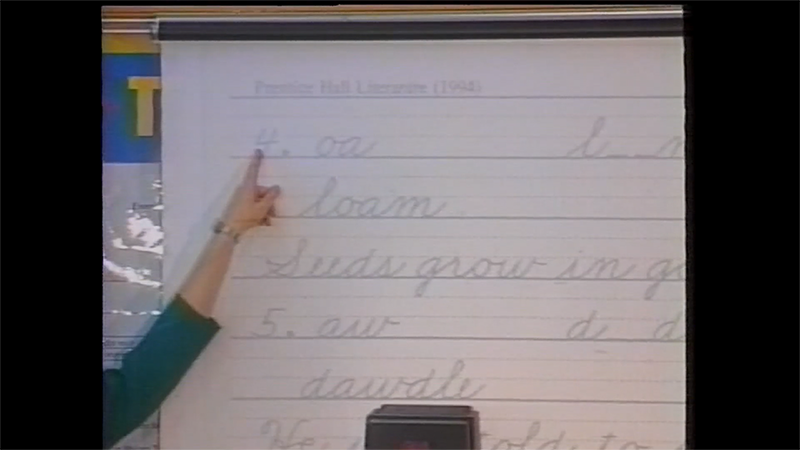 Prentice Hall Literature (1994)
4. oa l__
loam
Seeds grow in
5. aw d__d
dawdle
He told to
T